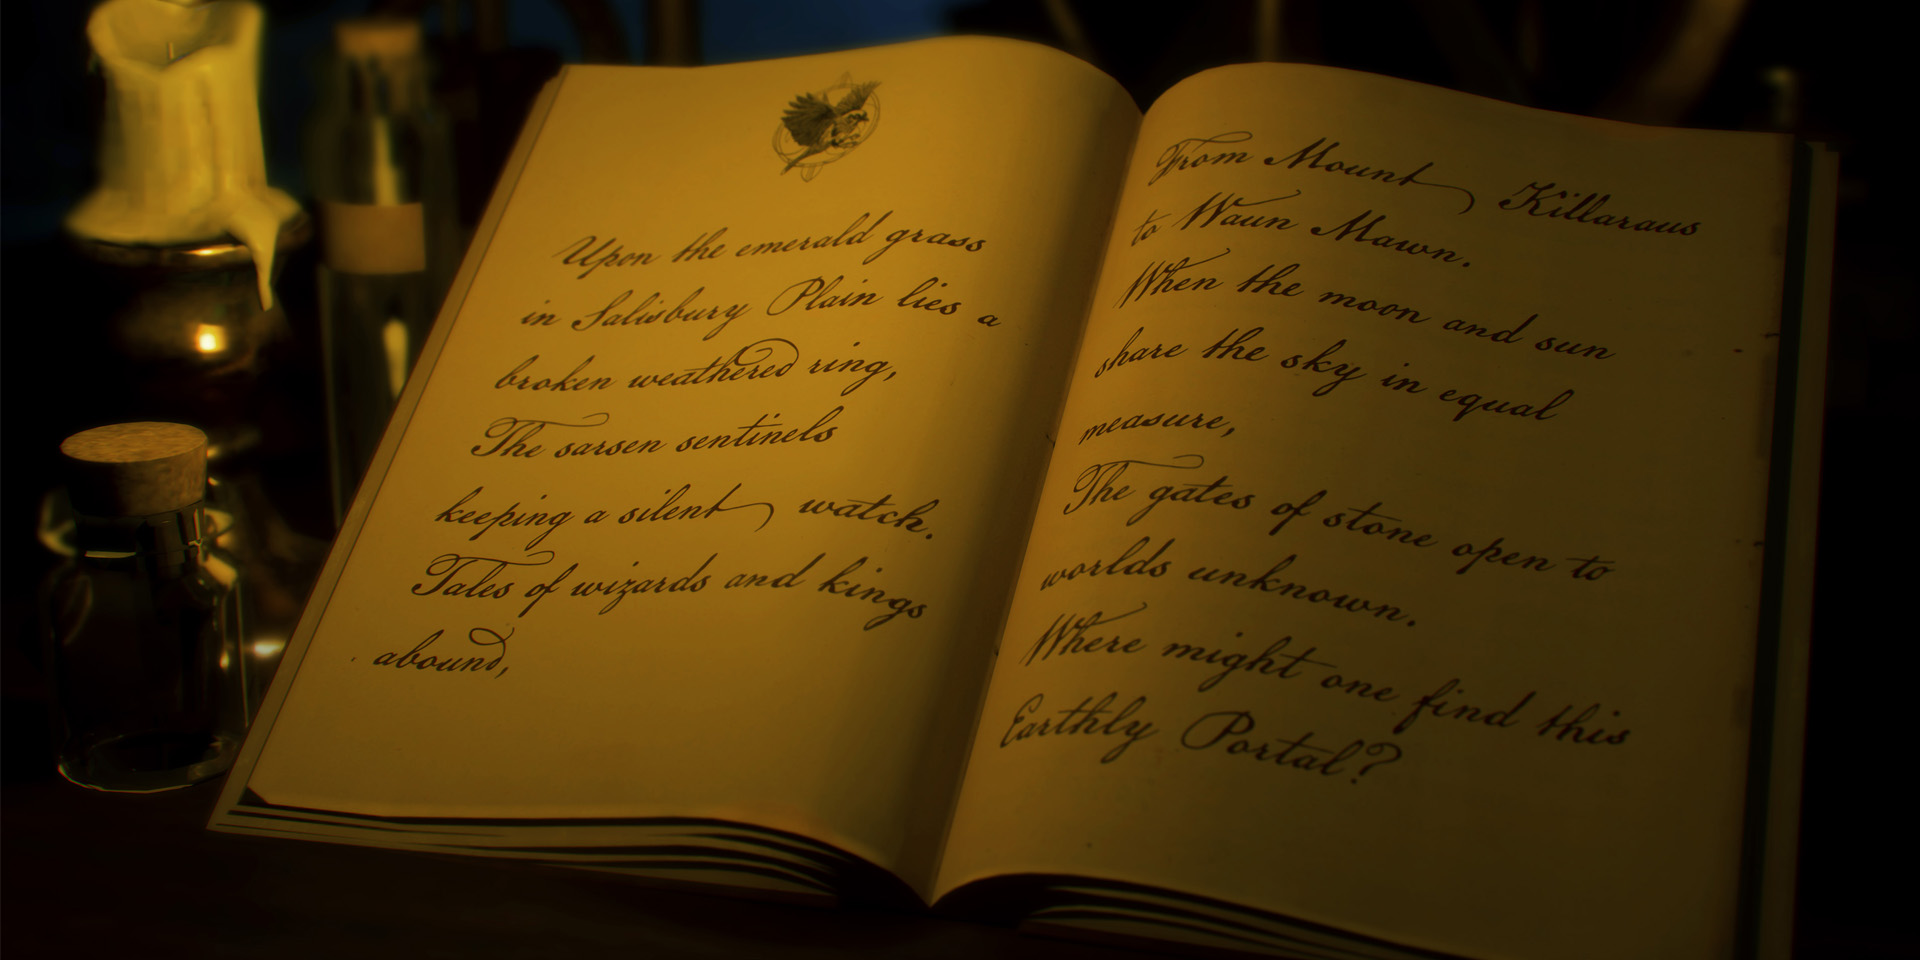 Upon the emerald grass
in Salisbury Plain lies a
broken weathered ring,
The sarsen sentinels
keeping a silent watch.
Tales of wizards and kings
abound,
From Mount Killaraus
to Waun Mawn.
When the moon and sun
share the sky in equal
measure,
The gates of stone open to
worlds unknown.
Where might one find this
Earthly Portal?